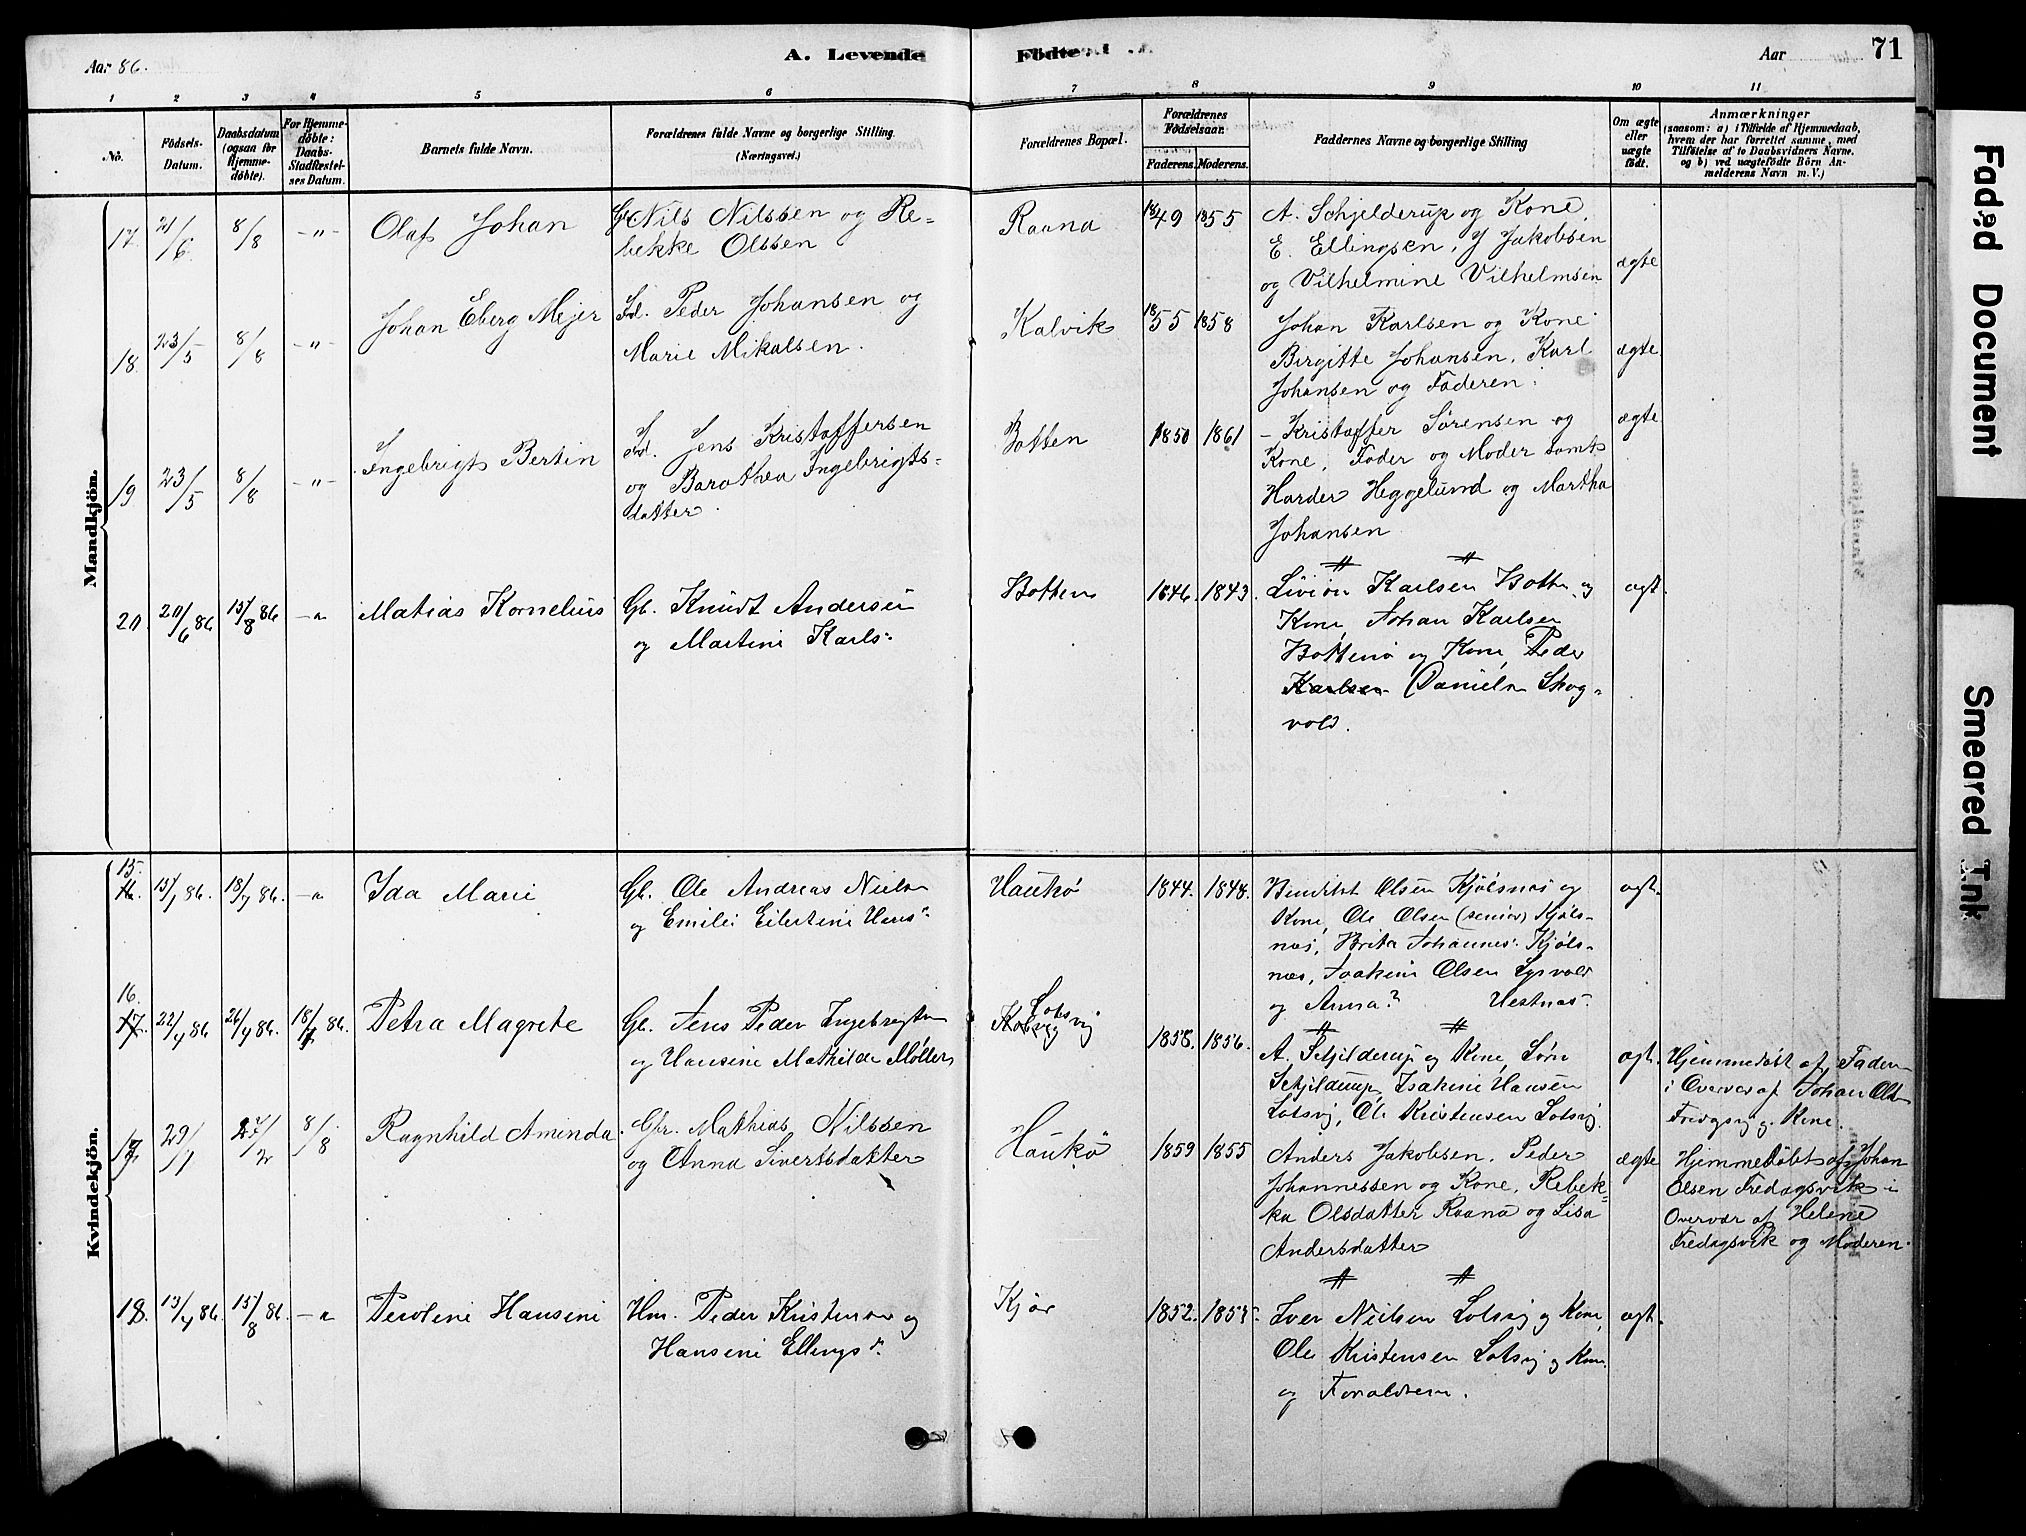 Aar 86.
A. Levende
Födte.
Aar
71
1 2 3 4 5 6 7 8 9 10 11
No.
Födsels-
Datum.
Daabsdatum
(ogsaa for
Hjemme-
döbte).
For Hjemme-
döbte:
Daabs-
Stadfæstel-
ses Datum.
Barnets fulde Navn.
Forældrenes fulde Navne og borgerlige Stilling.
(Næringsvei.)
Forældrenes Bopæl.
Forældrenes
Födselsaar.
Faderens. Moderens.
Faddernes Navne og borgerlige Stilling
Om ægte
eller
uægte
födt.
Anmærkninger
(saasom: a) i Tilfælde af Hjemmedaab,
hvem der har forrettet samme, med
Tilföielse af to Daabsvidners Navne.
og b) ved uægtefödte Börn An-
melderens Navn m. V.)
Mandkjön.
17. 21/6 8/8 -"- Olaf Johan
Gb Nils Nilssen og Re-
bekke Olssen
Raana
1849 1855
A. Schjelderup og Kone,
E. Ellingsen, J Jakobsen
og Vilhelmine Vilhelmsen
ægte
18. 23/5 8/8 -"- Johan Eberg Mejer
Ind. Peder Johansen og
Marie Mikalsen.
Kalvik
1855 1858
Johan Karlsen og Kone
Birgitte Johansen, Karl
Johansen og Faderen.
ægte.
19 23/5 8/8 -"- Ingebrigt Bertin
Ind. Jens Kristoffersen
og Barothea Ingebrigts-
datter.
Botten
1850 1861
- Kristoffer Sørensen og
Kone, Fader og Moder samt
Harder Heggelund og Martha
Johansen
ægte
20. 20/6 86 15/8 86 -"- Matias Kornelius
Gb. Knudt Andersen
og Martini Karls.
Botten
1846. 1843.
Karlsen Botten og
Kone, Johan Karlsen
Botten og Kone, Peder
Karlsen Skog-
vold.
ægt.
Kvindekjön.
15. 18/7 86. -"- Ida Marie
Gb. Ole Andreas Niels
og Emilie Eilertine Hans
Haukø
1844. 1848.
Benedikt Olsen Kjølsnæs og
Kone, Ole Olsen (senior) Kjøls-
næs, Brita Johannes. Kjøls-
næs, Joakim Olsen Lysvold
og Anna? Vestnæs.
ægt.
16. 22/4 86 26/4 86. 18/7 86. Petra Magrete
Gb. Jens Peder Ingebrigts
og Hansine Mathilde Møller
Lotsvig
1858. 1856.
A. Schjelderup og Kone, Sørn
Schjelderup, Isakine Hansen
Lotsvig, Ole Kristensen Lotsvig.
ægt.
Hjemmedøbt af Faderen
i Overvær af Johan Olsen
Fredagsvig og Kone.
17. 29/1 27/2 8/8 Ragnhild Aminda
Gbr. Mathias Nilssen
og Anna Sivertsdatter
Haukø
1859 1855
Anders Jakobsen, Peder
Johannessen og Kone, Rebek-
ka Olsdatter Raana og Lisa
Andersdatter
ægte
Hjemmedöbt af Johan
Olsen Fredagsvik i
Overvær af Helene
Fredagsvik og Moderen.
18. 13/4 86 15/8 86. -"- Peroline Hansine
Hm. Peder Kristensen og
Hansine Ellings d.
Kjør
1852. 1855.
Iver Nielsen Lotsvig og Kone,
Ole Kristensen Lotsvig og Kone
og Forældrene.
ægt.
Faded Document
Smeared Ink